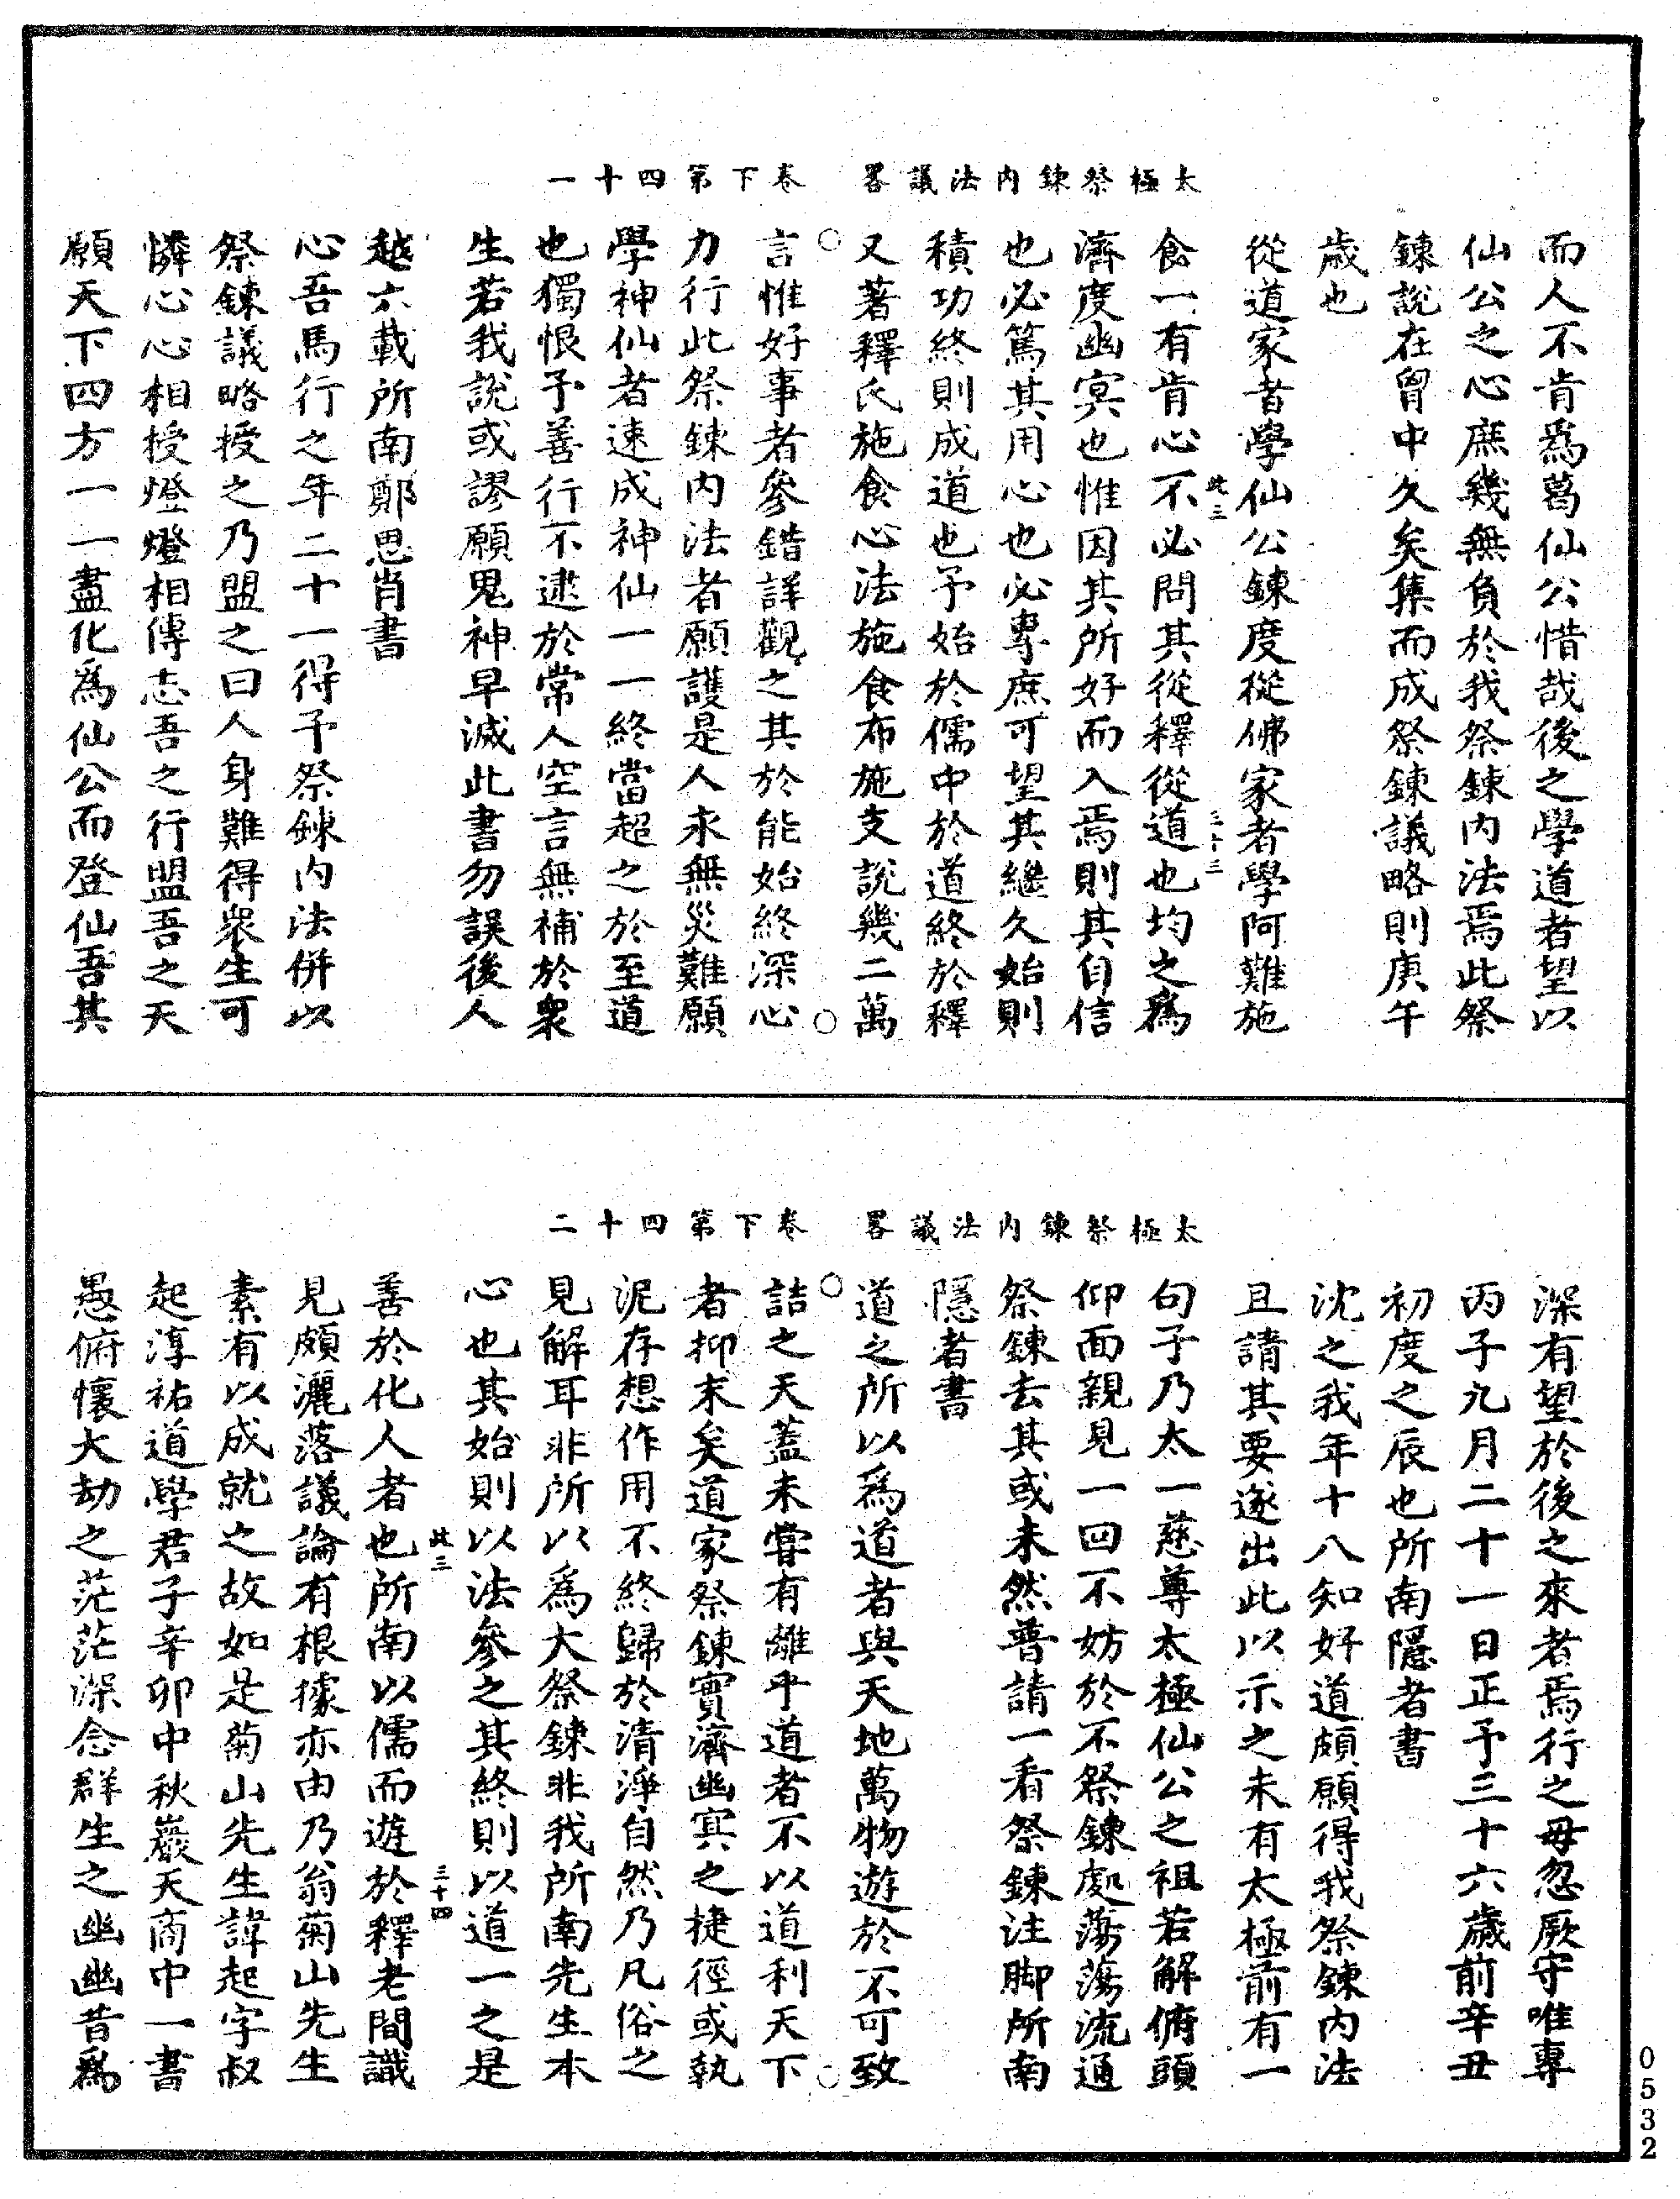 太極祭鍊內法議畧　卷下第四十一
而人不肯爲葛仙公惜哉後之學道者望以
仙公之心庶幾無負於我祭鍊內法焉此祭
鍊說在胷中久矣集而成祭鍊議略則庚午
歲也
從道家者學仙公鍊度從佛家者學阿難施
此三
三十三
食一有肯心不必問其從釋從道也均之爲
濟度幽冥也惟因其所好而入焉則其自信
也必篤其用心也必專庶可望其繼久始則
積功終則成道也予始於儒中於道終於釋
又著釋氏施食心法施食布施支說幾二萬
言惟好事者參錯詳觀之其於能始終深心
力行此祭鍊內法者願護是人永無災難願
學神仙者速成神仙一一終當超之於至道
也獨恨予善行不逮於常人空言無補於衆
生若我說或謬願鬼神早滅此書勿誤後人
越六載所南鄭思肖書
心吾馬行之年二十一得予祭鍊內法併以
祭鍊議略授之乃盟之曰人身難得衆生可
憐心心相授燈燈相傳志吾之行盟吾之天
願天下四方一一盡化爲仙公而登仙吾其
太極祭鍊內法議畧　卷下第四十二
深有望於後之來者焉行之毋忽厥守唯專
丙子九月二十一日正予三十六歲前辛丑
初度之辰也所南隱者書
沈之我年十八知好道頗願得我祭鍊內法
且請其要遂出此以示之未有太極前有一
句子乃太一慈尊太極仙公之祖若解俯頭
仰面親見一回不妨於不祭鍊處蕩蕩流通
祭鍊去其或未然普請一看祭鍊注脚所南
隱者書
道之所以爲道者與天地萬物遊於不可致
詰之天蓋未甞有離乎道者不以道利天下
者抑末矣道家祭鍊實濟幽冥之捷徑或執
泥存想作用不終歸於清淨自然乃凡俗之
見解耳非所以爲大祭鍊非我所南先生本
心也其始則以法參之其終則以道一之是
此三
三十四
善於化人者也所南以儒而遊於釋老間識
見頗灑落議論有根據亦由乃翁菊山先生
素有以成就之故如是菊山先生諱起字叔
起淳祐道學君子辛卯中秋巖天商中一書
愚俯懷大劫之茫茫深念群生之幽幽昔爲
0532